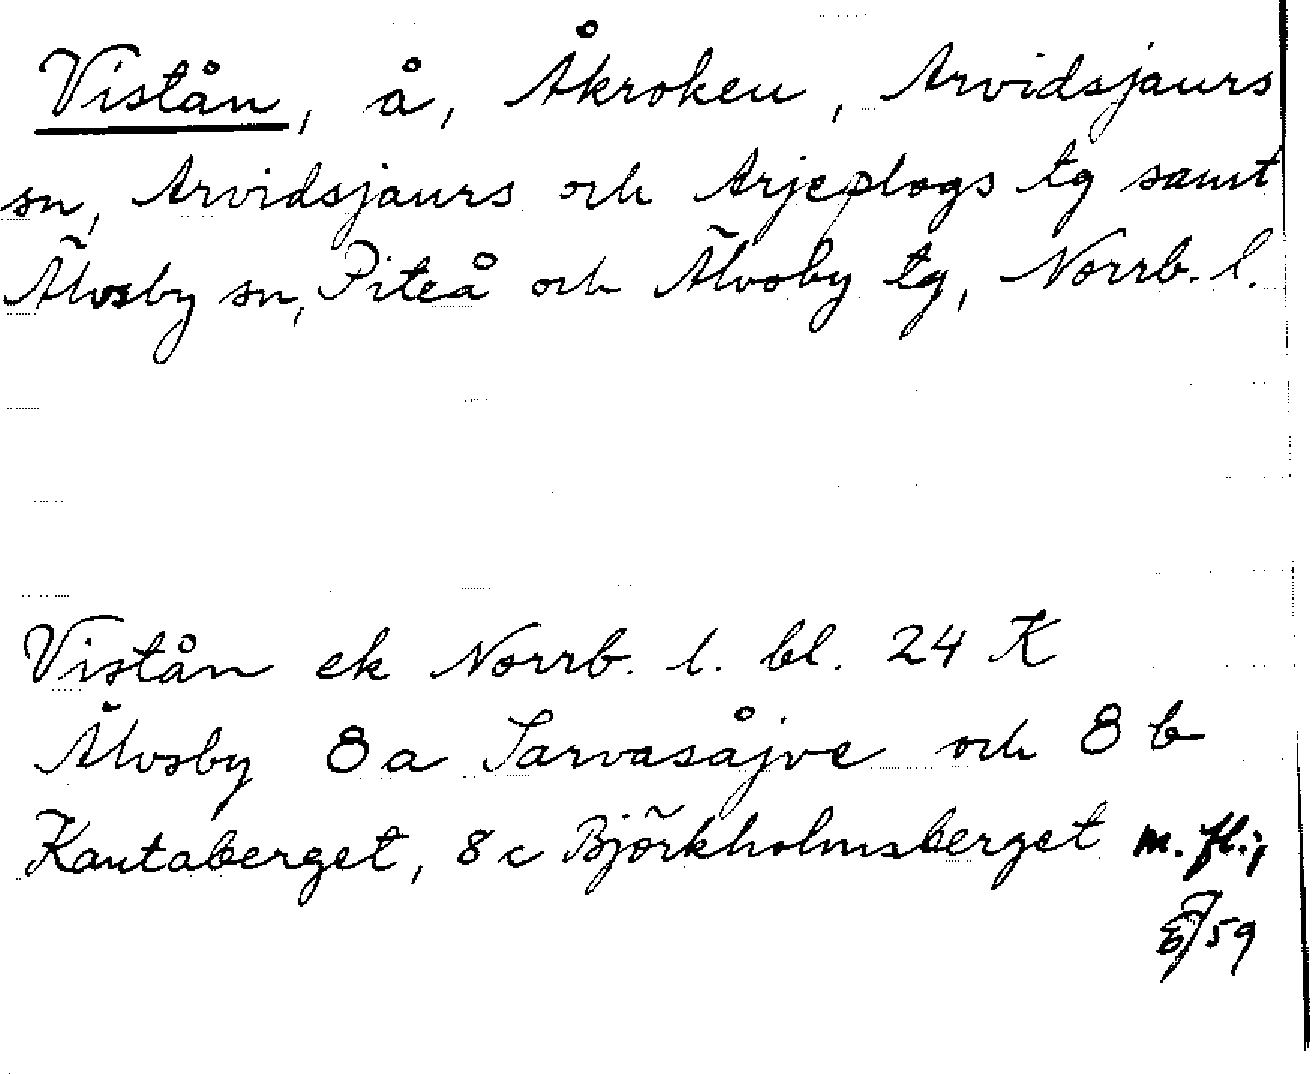 Vistån, å, Åkroken, Arvidsjaurs
sn, Arvidsjaurs och Arjeplogs tg samt
Älvsby sn, Piteå och Älvsby tg, Norrb. l.
Vistån ek Norrb. l. bl. 24 K
Älvsby 8a Sarvasåjve och 8 b
Kantaberget, 8c Björkholmsberget m. fl.;
/59